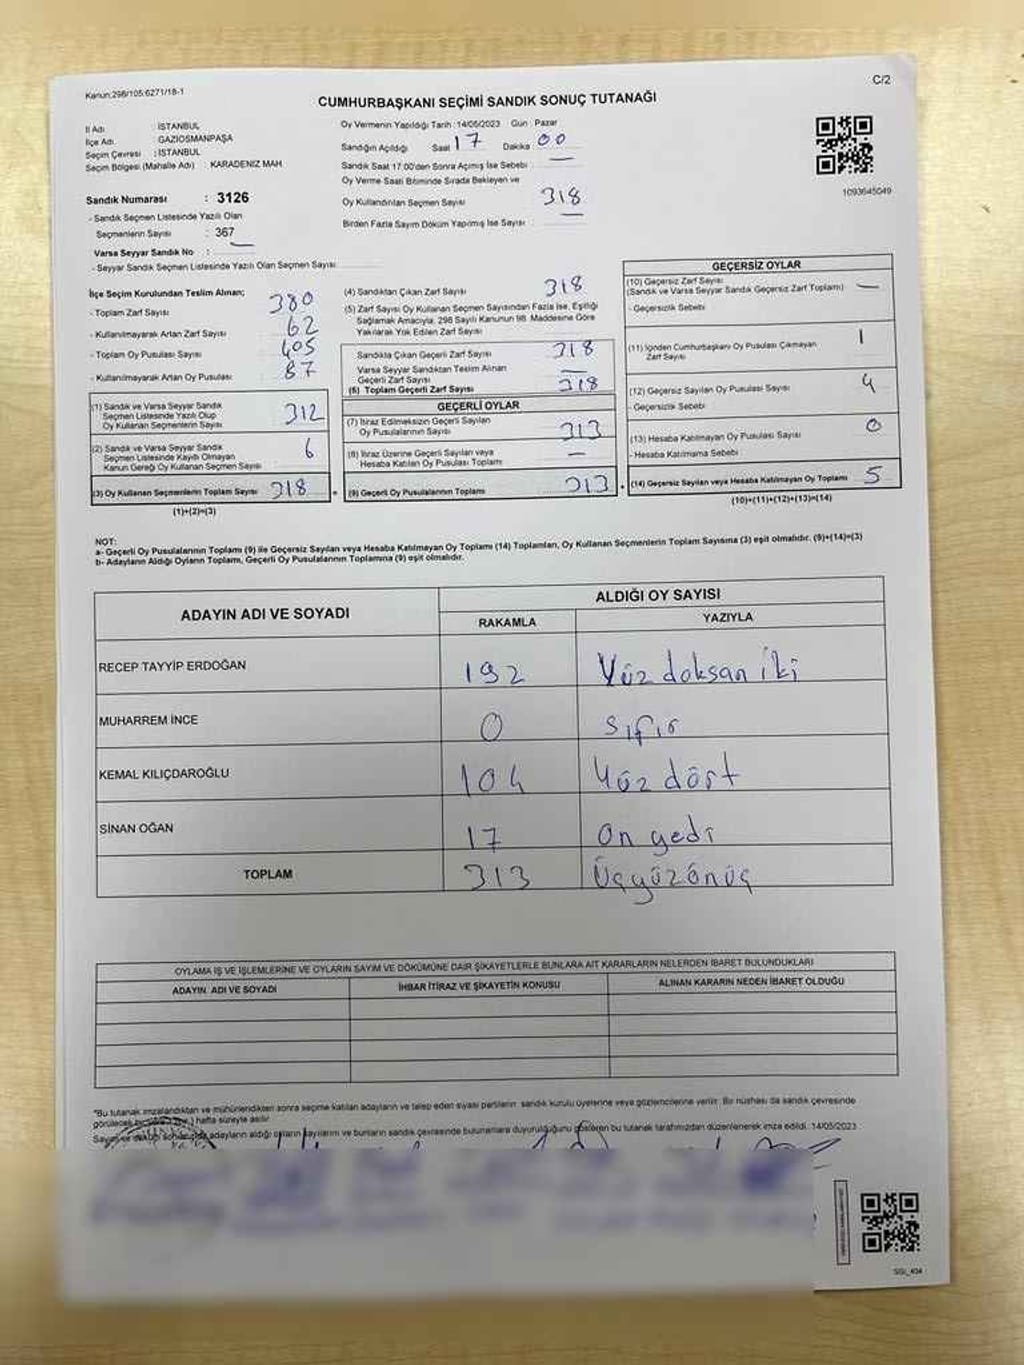 Kanun:298/105:6271/18-1
C/2
CUMHURBAŞKANI SEÇİMİ SANDIK SONUÇ TUTANAĞI
İl Adı : İSTANBUL
İlçe Adı : GAZİOSMANPAŞA
Seçim Çevresi : İSTANBUL
Seçim Bölgesi (Mahalle Adı) : KARADENİZ MAH.
Sandık Numarası : 3126
- Sandık Seçmen Listesinde Yazılı Olan
Seçmenlerin Sayısı : 367
Varsa Seyyar Sandık No : —
- Seyyar Sandık Seçmen Listesinde Yazılı Olan Seçmen Sayısı:
Oy Vermenin Yapıldığı Tarih : 14/05/2023 Gün : Pazar
Sandığın Açıldığı Saat 17 Dakika 00
Sandık Saat 17:00'den Sonra Açılmış İse Sebebi : —
Oy Verme Saati Bitiminde Sırada Bekleyen ve
Oy Kullandırılan Seçmen Sayısı 318
Birden Fazla Sayım Döküm Yapılmış İse Sayısı : —
1093645049
İlçe Seçim Kurulundan Teslim Alınan;
- Toplam Zarf Sayısı 380
- Kullanılmayarak Artan Zarf Sayısı 62
- Toplam Oy Pusulası Sayısı 405
- Kullanılmayarak Artan Oy Pusulası 87
(1) Sandık ve Varsa Seyyar Sandık
Seçmen Listesinde Yazılı Olup
Oy Kullanan Seçmenlerin Sayısı 312
(2) Sandık ve Varsa Seyyar Sandık
Seçmen Listesinde Kayıtlı Olmayan
Kanun Gereği Oy Kullanan Seçmen Sayısı 6
(3) Oy Kullanan Seçmenlerin Toplam Sayısı 318
(1)+(2)=(3)
(4) Sandıktan Çıkan Zarf Sayısı 318
(5) Zarf Sayısı Oy Kullanan Seçmen Sayısından Fazla İse, Eşitliği
Sağlamak Amacıyla, 298 Sayılı Kanunun 98. Maddesine Göre
Yakılarak Yok Edilen Zarf Sayısı
Sandıkta Çıkan Geçerli Zarf Sayısı 318
Varsa Seyyar Sandıktan Teslim Alınan
Geçerli Zarf Sayısı —
(6) Toplam Geçerli Zarf Sayısı 318
GEÇERLİ OYLAR
(7) İtiraz Edilmeksizin Geçerli Sayılan
Oy Pusulalarının Sayısı 313
(8) İtiraz Üzerine Geçerli Sayılan veya
Hesaba Katılan Oy Pusulası Toplamı —
(9) Geçerli Oy Pusulalarının Toplamı 313
GEÇERSİZ OYLAR
(10) Geçersiz Zarf Sayısı
(Sandık ve Varsa Seyyar Sandık Geçersiz Zarf Toplamı) —
- Geçersizlik Sebebi
(11) İçinden Cumhurbaşkanı Oy Pusulası Çıkmayan
Zarf Sayısı 1
(12) Geçersiz Sayılan Oy Pusulası Sayısı 4
- Geçersizlik Sebebi
(13) Hesaba Katılmayan Oy Pusulası Sayısı 0
- Hesaba Katılmama Sebebi
(14) Geçersiz Sayılan veya Hesaba Katılmayan Oy Toplamı 5
(10)+(11)+(12)+(13)=(14)
NOT:
a- Geçerli Oy Pusulalarının Toplamı (9) ile Geçersiz Sayılan veya Hesaba Katılmayan Oy Toplamı (14) Toplamları, Oy Kullanan Seçmenlerin Toplam Sayısına (3) eşit olmalıdır. (9)+(14)=(3)
b- Adayların Aldığı Oyların Toplamı, Geçerli Oy Pusulalarının Toplamına (9) eşit olmalıdır.
ADAYIN ADI VE SOYADI
ALDIĞI OY SAYISI
RAKAMLA YAZIYLA
RECEP TAYYİP ERDOĞAN 192 Yüz doksan iki
MUHARREM İNCE 0 sıfır
KEMAL KILIÇDAROĞLU 104 Yüz dört
SİNAN OĞAN 17 On yedi
TOPLAM 313 Üçyüzonüç
OYLAMA İŞ VE İŞLEMLERİNE VE OYLARIN SAYIM VE DÖKÜMÜNE DAİR ŞİKAYETLERLE BUNLARA AİT KARARLARIN NELERDEN İBARET BULUNDUKLARI
ADAYIN ADI VE SOYADI İHBAR İTİRAZ VE ŞİKAYETİN KONUSU ALINAN KARARIN NEDEN İBARET OLDUĞU
*Bu tutanak imzalandıktan ve mühürlendikten sonra seçime katılan adayların ve talep eden siyasi partilerin sandık kurulu üyelerine veya gözlemcilerine verilir. Bir nüshası da sandık çevresinde
hafta süreyle asılır.
adayların aldığı oyların sayılarını ve bunların sandık çevresinde bulunanlara duyurulduğunu gösteren bu tutanak tarafımızdan düzenlenerek imza edildi. 14/05/2023